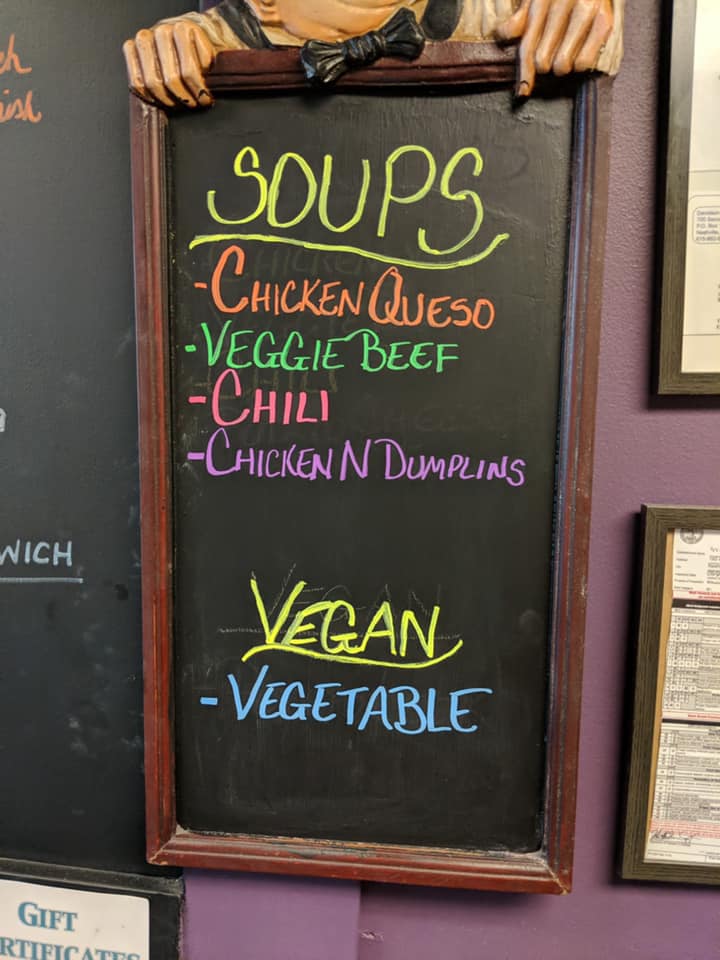 SOUPS
- CHICKEN QUESO
- VEGGIE BEEF
- CHILI
- CHICKEN N DUMPLINS
VEGAN
- VEGETABLE
WICH
GIFT
RTIFICATES